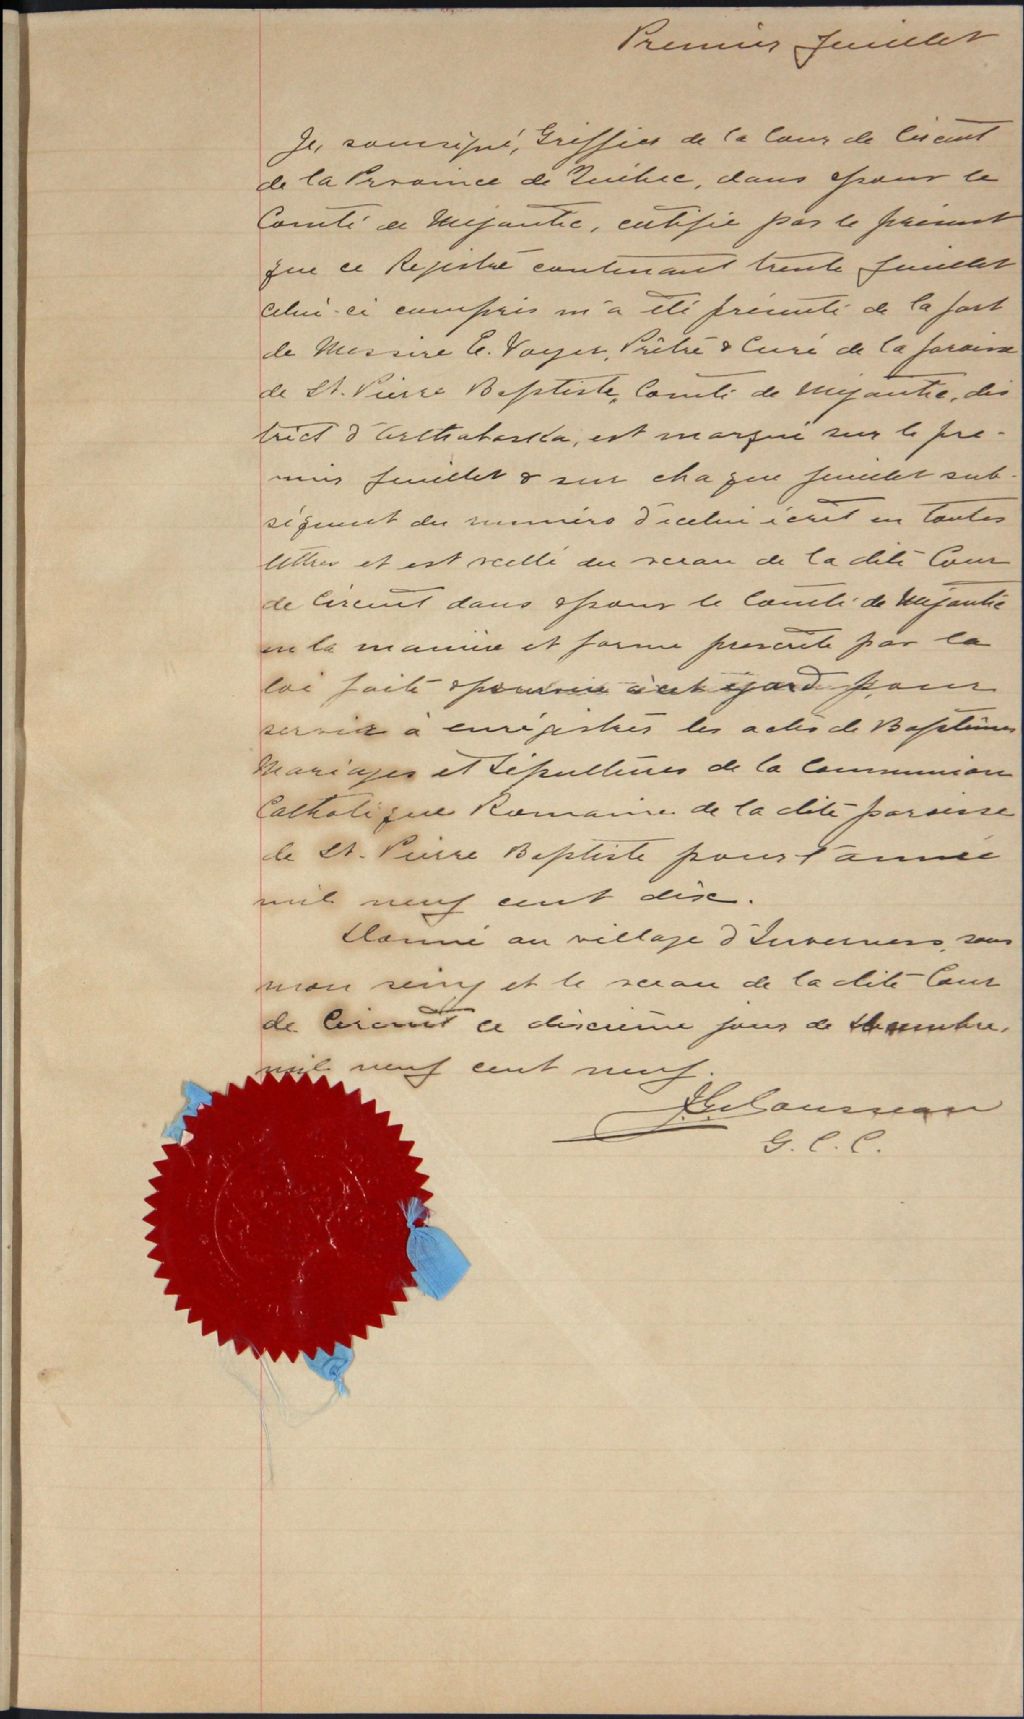 Premier feuillet
Je, soussigné, Greffier de la Cour de Circuit
de la Province de Québec, dans & pour le
Comté de Mégantic, certifie par le présent
que ce Registre contenant trente feuillet
celui-ci compris m'a été présenté de la part
de Messire E. Voyer, Prêtre & Curé de la paroisse
de St. Pierre Baptiste, Comté de Mégantic, dis
trict d'Arthabaska, est marqué sur le pre-
mier feuillet & sur chaque feuillet sub-
séquent du numéro d'icelui écrit en toutes
lettres et est scellé du sceau de la dite Cour
de Circuit dans & pour le Comté de Mégantic
en la manière et forme prescrite par la
loi faite & pourvue à cet égard pour
servir à enrégistrer les actes de Baptêmes
Mariages et Sépultures de la Communion
Catholique Romaine de la dite paroisse
de St. Pierre Baptiste pour l'année
mil neuf cent dix.
Donné au village d'Inverness, sous
mon seing et le sceau de la dite Cour
de Circuit ce dixième jour de
mil neuf cent neuf.
G. C. C.